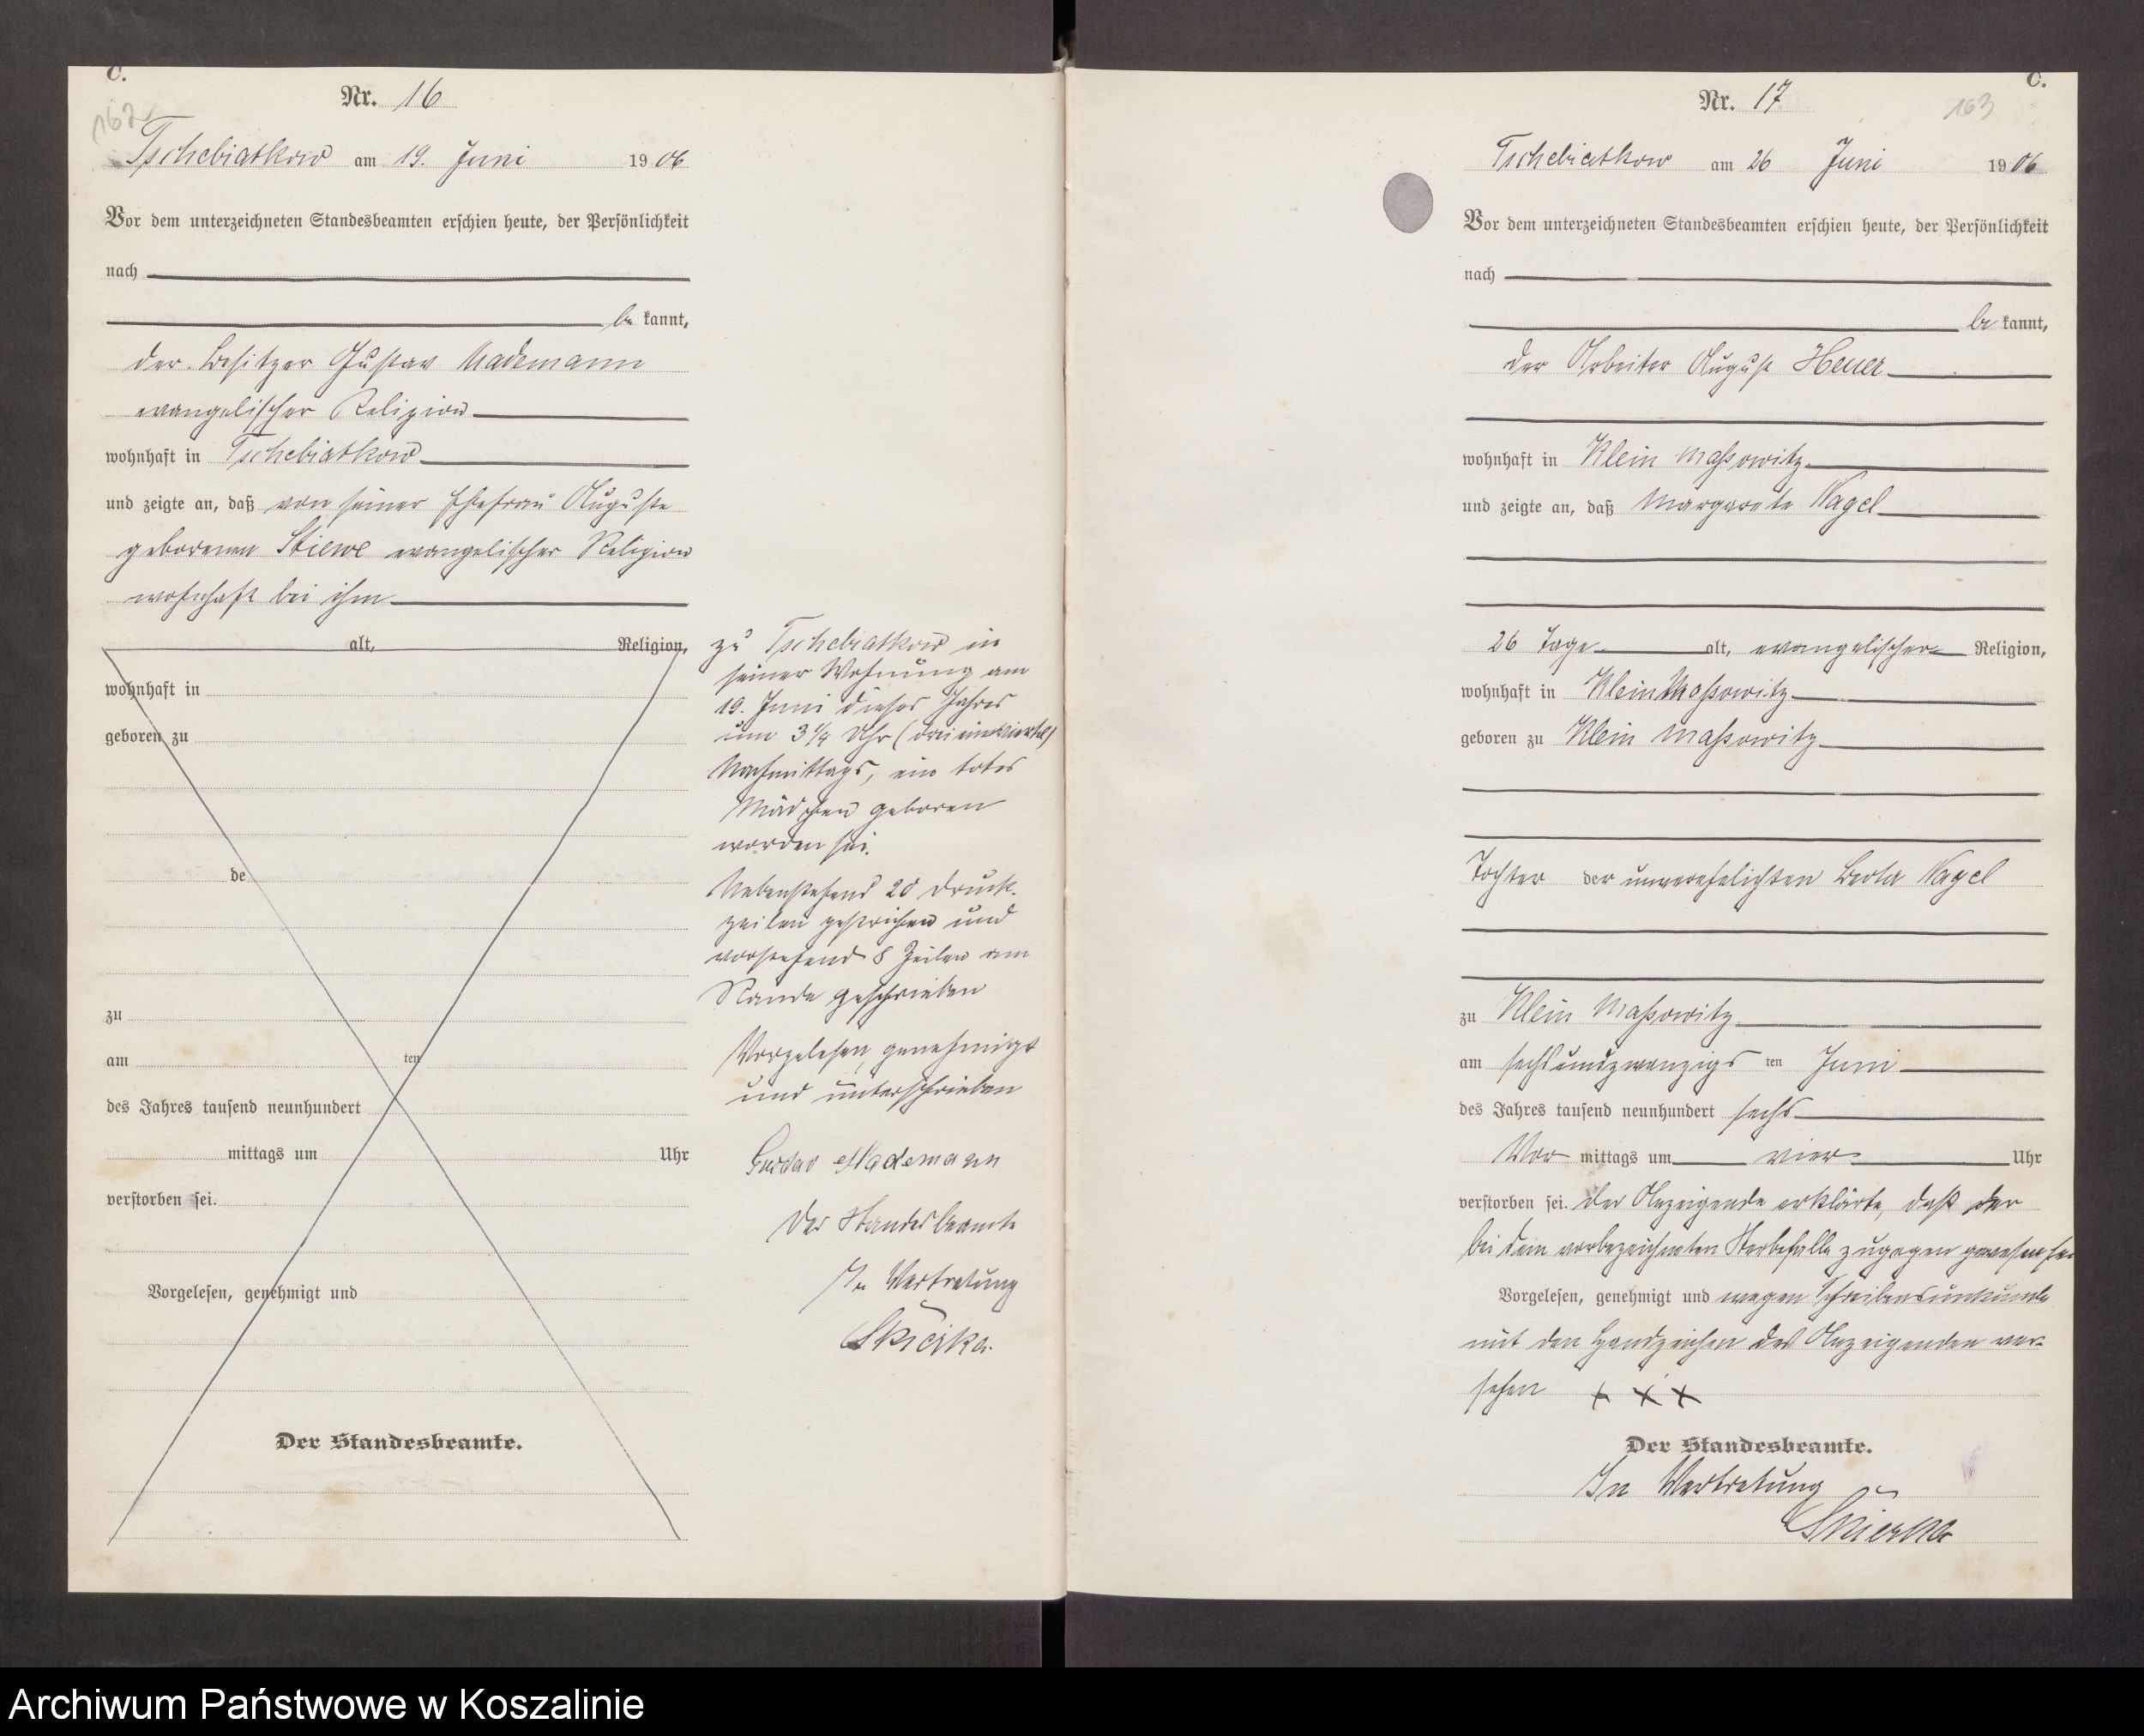 C.
162
Nr. 16
Tschebiatkow am 19. Juni 1906
Vor dem unterzeichneten Standesbeamten erschien heute, der Persönlichkeit
nach
be kannt,
der Besitzer Gustav Mademann
evangelischer Religion
wohnhaft in Tschebiatkow
und zeigte an, daß von seiner Ehefrau Auguste
geborenen Stiewe evangelischer Religion
wohnhaft bei ihm
alt, Religion,
wohnhaft in
geboren zu
de
zu
am ten
des Jahres tausend neunhundert
mittags um Uhr
verstorben sei.
Vorgelesen, genehmigt und
Der Standesbeamte.
zu Tschebiatkow in
seiner Wohnung am
19. Juni dieses Jahres
um 3 1/4 Uhr (drei einviertel)
Nachmittags, ein totes
Mädchen geboren
worden sei.
Nebenstehend 20 Druck-
zeilen gestrichen und
vorstehend 8 Zeilen am
Rande geschrieben
Vorgelesen, genehmigt
und unterschrieben
Gustav Mademann
Der Standesbeamte
In Vertretung
Skierka.
C.
163
Nr. 17
Tschebiatkow am 26 Juni 1906
Vor dem unterzeichneten Standesbeamten erschien heute, der Persönlichkeit
nach
be kannt,
der Arbeiter August Heuer
wohnhaft in Klein Massowitz
und zeigte an, daß Margarete Nagel
26 Tage alt, evangelischer Religion,
wohnhaft in Klein Massowitz
geboren zu Klein Massowitz
Tochter der unverehelichten Berta Nagel
zu Klein Massowitz
am sechsundzwanzigsten Juni
des Jahres tausend neunhundert sechs
Vor mittags um vier Uhr
verstorben sei. Der Anzeigende erklärte, daß er
bei dem vorbezeichneten Sterbefalle zugegen gewesen sei
Vorgelesen, genehmigt und wegen Schreibensunkunde
mit den Handzeichen des Anzeigenden ver-
sehen + + +
Der Standesbeamte.
In Vertretung
Skierka
Archiwum Państwowe w Koszalinie